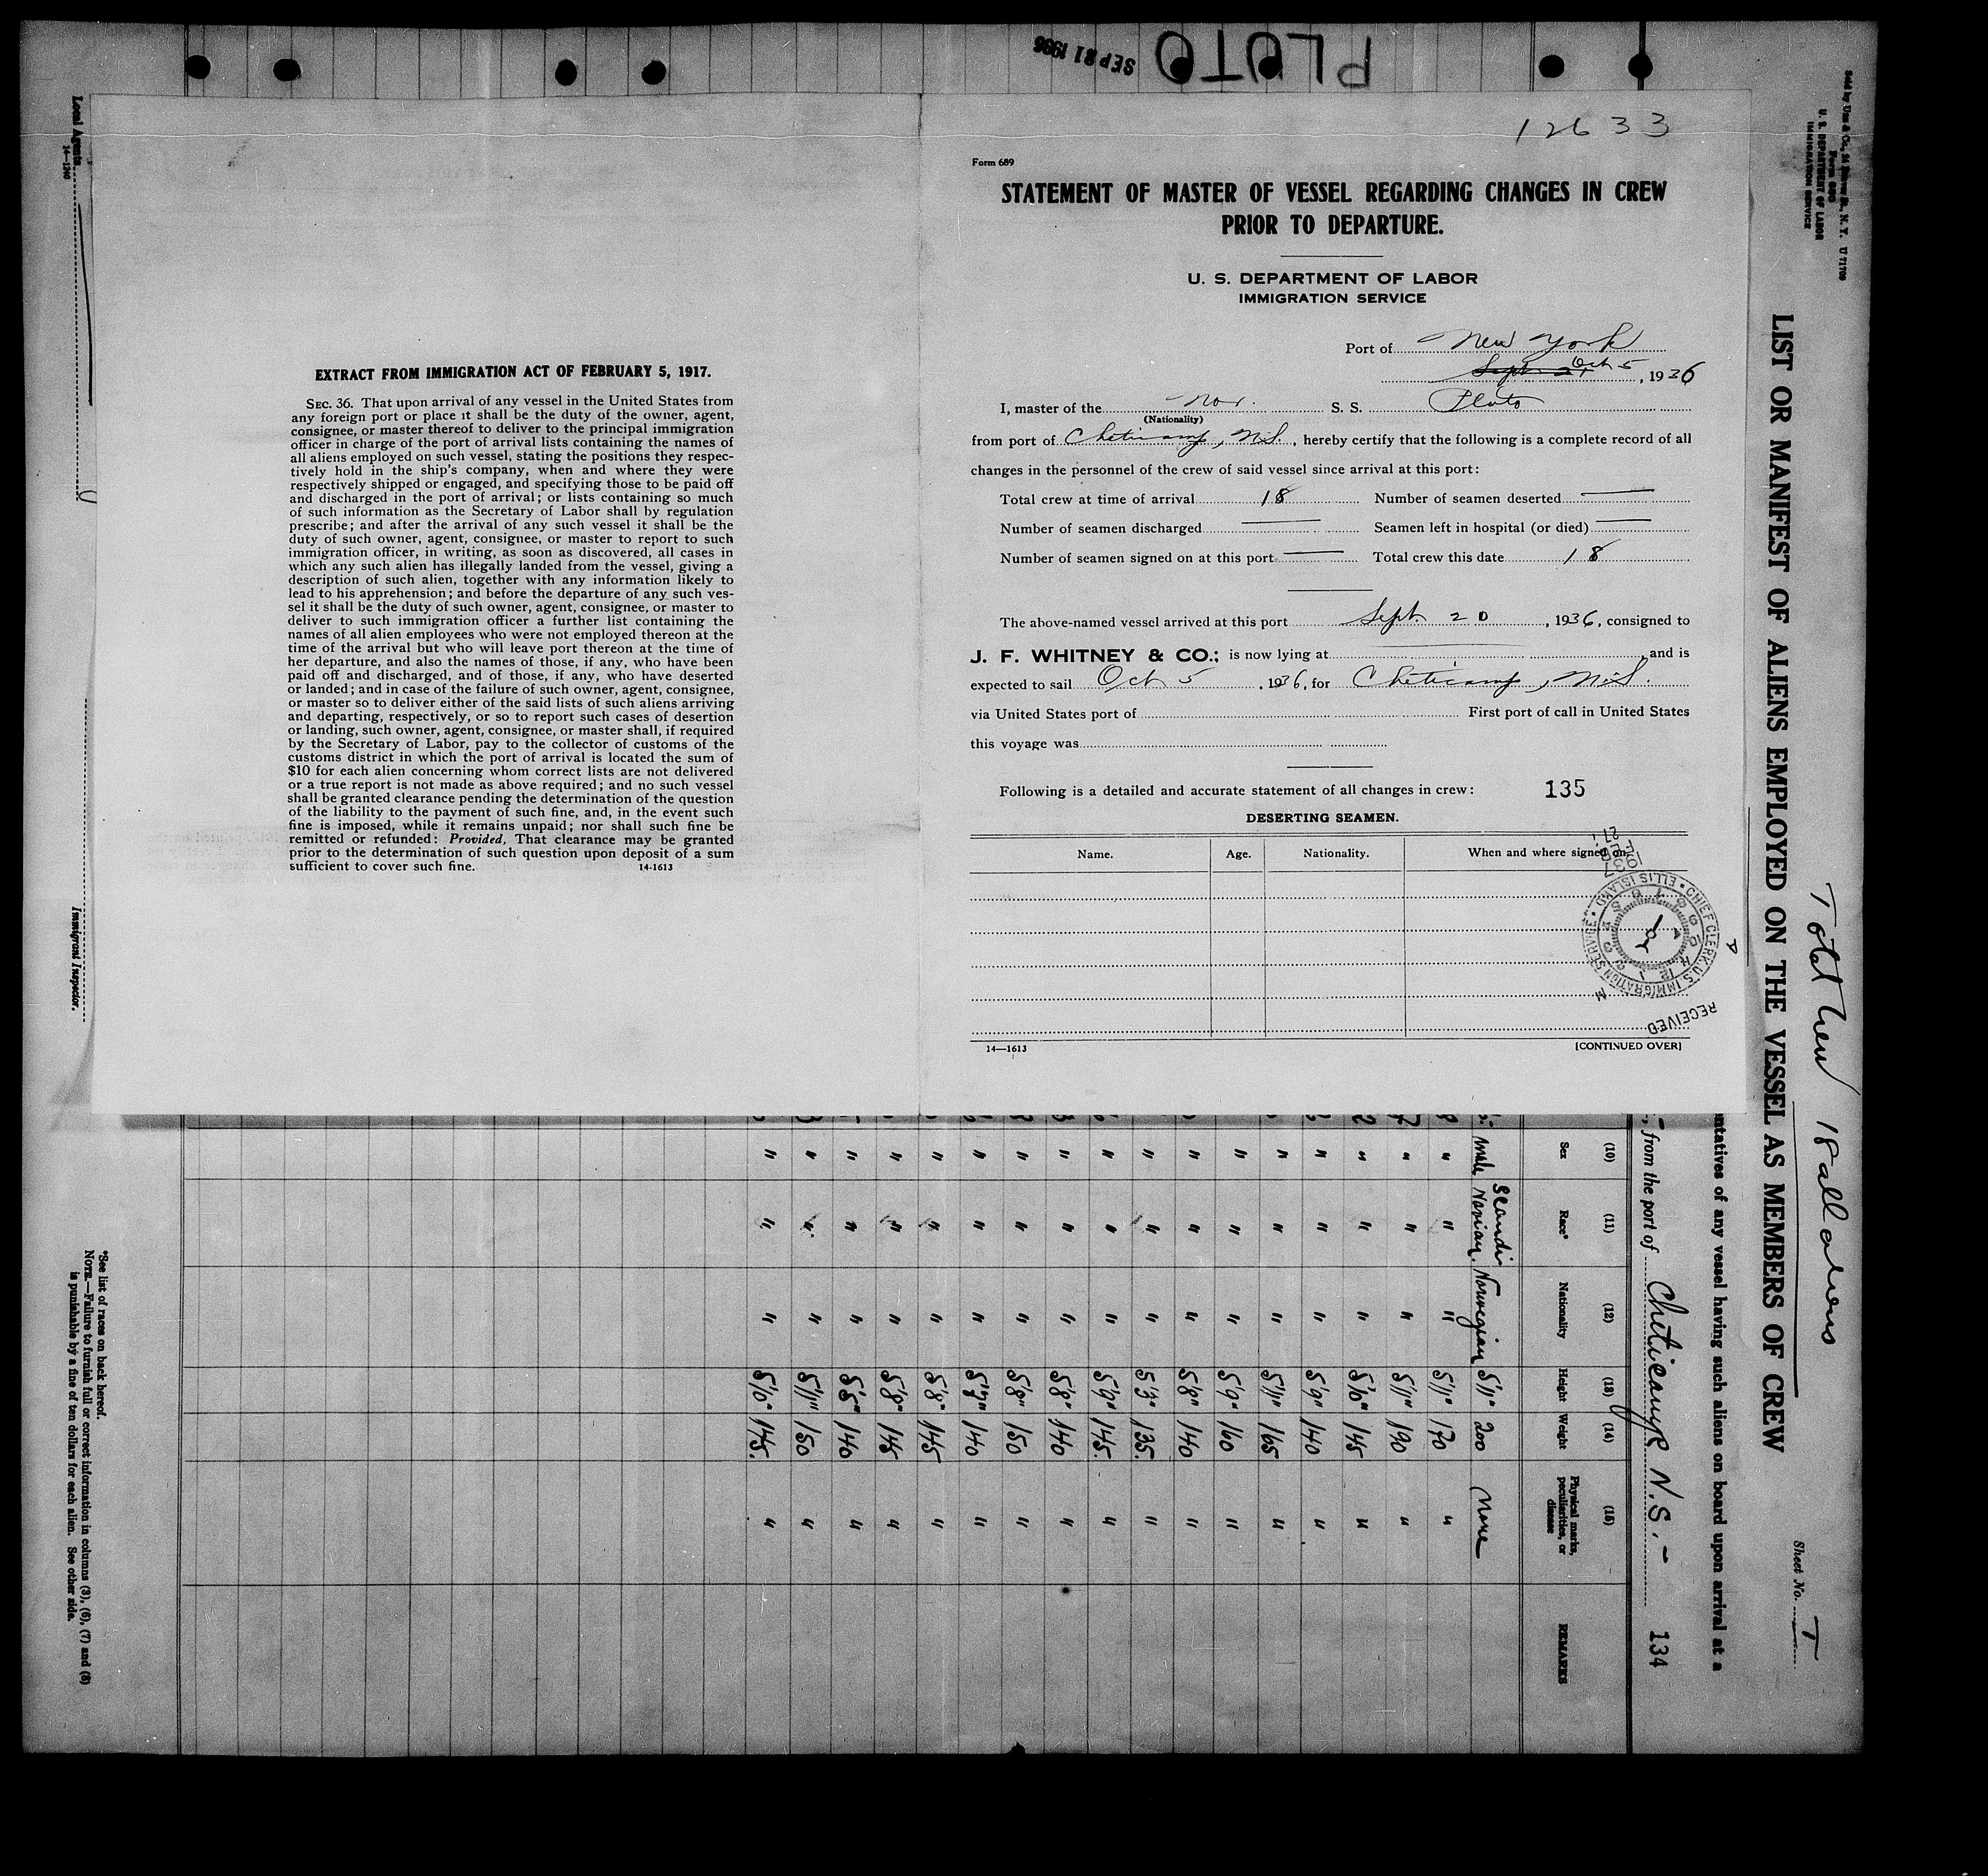 PLUTO
SEP 21 1936
12633
Form 689
STATEMENT OF MASTER OF VESSEL REGARDING CHANGES IN CREW
PRIOR TO DEPARTURE.
U. S. DEPARTMENT OF LABOR
IMMIGRATION SERVICE
Port of New York
Sept 21 Oct 5, 1936
I, master of the Nor. S. S. Pluto
(Nationality)
from port of Cheticamp, N.S., hereby certify that the following is a complete record of all
changes in the personnel of the crew of said vessel since arrival at this port:
Total crew at time of arrival 18 Number of seamen deserted —
Number of seamen discharged — Seamen left in hospital (or died) —
Number of seamen signed on at this port — Total crew this date 18
The above-named vessel arrived at this port Sept. 20, 1936, consigned to
J. F. WHITNEY & CO.; is now lying at , and is
expected to sail Oct 5, 1936, for Cheticamp, N.S.
via United States port of First port of call in United States
this voyage was
Following is a detailed and accurate statement of all changes in crew: 135
DESERTING SEAMEN.
Name. Age. Nationality. When and where signed on.
CHIEF CLERK, U.S. IMMIGRATION SERVICE • ELLIS ISLAND •
RECEIVED
14—1613 [CONTINUED OVER]
EXTRACT FROM IMMIGRATION ACT OF FEBRUARY 5, 1917.
SEC. 36. That upon arrival of any vessel in the United States from
any foreign port or place it shall be the duty of the owner, agent,
consignee, or master thereof to deliver to the principal immigration
officer in charge of the port of arrival lists containing the names of
all aliens employed on such vessel, stating the positions they respec-
tively hold in the ship's company, when and where they were
respectively shipped or engaged, and specifying those to be paid off
and discharged in the port of arrival; or lists containing so much
of such information as the Secretary of Labor shall by regulation
prescribe; and after the arrival of any such vessel it shall be the
duty of such owner, agent, consignee, or master to report to such
immigration officer, in writing, as soon as discovered, all cases in
which any such alien has illegally landed from the vessel, giving a
description of such alien, together with any information likely to
lead to his apprehension; and before the departure of any such ves-
sel it shall be the duty of such owner, agent, consignee, or master to
deliver to such immigration officer a further list containing the
names of all alien employees who were not employed thereon at the
time of the arrival but who will leave port thereon at the time of
her departure, and also the names of those, if any, who have been
paid off and discharged, and of those, if any, who have deserted
or landed; and in case of the failure of such owner, agent, consignee,
or master so to deliver either of the said lists of such aliens arriving
and departing, respectively, or so to report such cases of desertion
or landing, such owner, agent, consignee, or master shall, if required
by the Secretary of Labor, pay to the collector of customs of the
customs district in which the port of arrival is located the sum of
$10 for each alien concerning whom correct lists are not delivered
or a true report is not made as above required; and no such vessel
shall be granted clearance pending the determination of the question
of the liability to the payment of such fine, and, in the event such
fine is imposed, while it remains unpaid; nor shall such fine be
remitted or refunded: Provided, That clearance may be granted
prior to the determination of such question upon deposit of a sum
sufficient to cover such fine. 14-1613
U. S. DEPARTMENT OF LABOR
IMMIGRATION SERVICE
Total Crew 18 all aliens
Sheet No. 1
LIST OR MANIFEST OF ALIENS EMPLOYED ON THE VESSEL AS MEMBERS OF CREW
ntatives of any vessel having such aliens on board upon arrival at a
, from the port of Cheticamp N.S. - 134
(10) (11) (12) (13) (14) (15)
Sex Race* Nationality Height Weight Physical marks, peculiarities, or disease REMARKS
male Scandinavian. Norwegian 5'11" 200 none
" " " 5'11" 170 "
" " " 5'11" 190 "
" " " 5'10" 145 "
" " " 5'9" 140 "
" " " 5'11" 165 "
" " " 5'9" 160 "
" " " 5'8" 140 "
" " " 5'3" 135. "
" " " 5'9" 145. "
" " " 5'8" 140 "
" " " 5'8" 150 "
" " " 5'7" 140 "
" " " 5'8" 145 "
" " " 5'8" 145 "
" " " 5'5" 140 "
" " " 5'11" 150 "
" " " 5'10" 145. "
Local Agents
14—1240
Immigrant Inspector.
*See list of races on back hereof.
NOTE.—Failure to furnish full or correct information in columns (3), (6), (7) and (8)
is punishable by a fine of ten dollars for each alien. See other side.